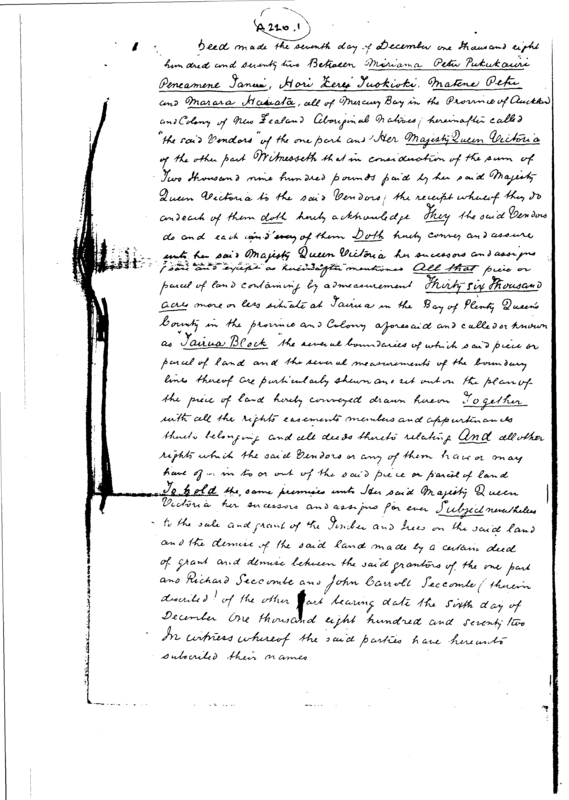 A 220.1
Deed made the seventh day of December one thousand eight
hundred and seventy two Between Miriama Petu Pukukauri
Peneamene Tanui, Hori Kerei Tuokioki, Matene Petu
and Marara, all of Mercury Bay in the Province of Auckland
and Colony of New Zealand Aboriginal Natives, hereinafter called
"the said Vendors" of the one part and Her Majesty Queen Victoria
of the other part Witnesseth that in consideration of the sum of
Two thousand nine hundred pounds paid by her said Majesty
Queen Victoria to the said Vendors, the receipt whereof they do
and each of them doth hereby acknowledge They the said Vendors
do and each and every of them Doth hereby convey and assure
unto her said Majesty Queen Victoria her successors and assigns
(save and except as hereinafter mentioned All that piece or
parcel of land containing by admeasurement Thirty six Thousand
acres more or less situate at Tairua in the Bay of Plenty Queens
County in the province and Colony aforesaid and called or known
as "Tairua Block the several boundaries of which said piece or
parcel of land and the several measurements of the boundary
lines thereof are particularly shewn and set out on the plan of
the piece of land hereby conveyed drawn hereon Together
with all the rights easements members and appurtenances
thereto belonging and all deeds thereto relating And all other
rights which the said Vendors or any of them have or may
have of in to or out of the said piece or parcel of land
To hold the same premises unto Her said Majesty Queen
Victoria her successors and assigns for ever Subject nevertheless
to the sale and grant of the Timber and Trees on the said land
and the demise of the said land made by a certain deed
of grant and demise between the said grantors of the one part
and Richard Seccombe and John Carroll Seccombe (therein
described) of the other part bearing date the sixth day of
December One thousand eight hundred and seventy two
In witness whereof the said parties have hereunto
subscribed their names